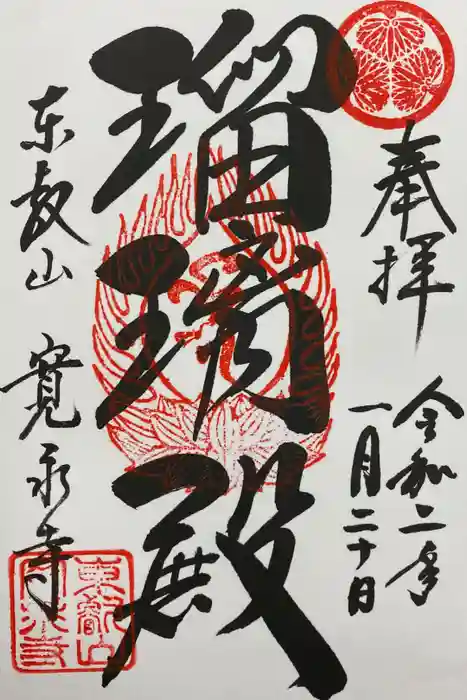 奉拝
令和二年
一月二十日
瑠璃殿
東叡山 寛永寺
東叡山
寛永寺